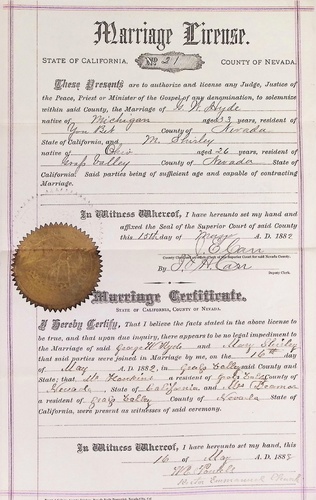 Marriage License.
STATE OF CALIFORNIA, No. 21 COUNTY OF NEVADA.
These Presents are to authorize and license any Judge, Justice of
the Peace, Priest or Minister of the Gospel of any denomination, to solemnize
within said County, the Marriage of G. W. Hyde
native of Michigan aged 33 years, resident of
You Bet County of Nevada
State of California, and M. Shirley
native of Ohio aged 26 years, resident of
Grass Valley County of Nevada State of
California. Said parties being of sufficient age and capable of contracting
Marriage.
In Witness Whereof, I have hereunto set my hand and
affixed the Seal of the Superior Court of said County
this 15th day of May A. D. 1882
Carr
County Clerk and ex-officio Clerk of the Superior Court for said Nevada County.
By Carr
Deputy Clerk.
Marriage Certificate.
STATE OF CALIFORNIA, COUNTY OF NEVADA.
I Hereby Certify, That I believe the facts stated in the above license to
be true, and that upon due inquiry, there appears to be no legal impediment to
the Marriage of said George W Hyde and Mary Shirley
that said parties were joined in Marriage by me, on the 16th day
of May A. D. 1882, in Grass Valley said County and
State; that a resident of Grass Valley County of
Nevada State of California, and Mrs
a resident of Grass Valley County of Nevada State of
California, were present as witnesses of said ceremony.
In Witness Whereof, I have hereunto set my hand, this
16 of May A. D. 1882
Emmanuel Church